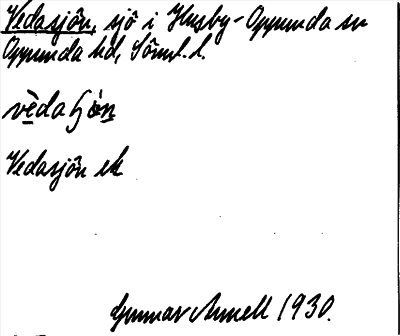 Vedasjön, sjö i Husby-Oppunda sn
Oppunda hd, Sörml. l.
vèdaʃòn
Vedasjön ek
Gunnar Arnell 1930.